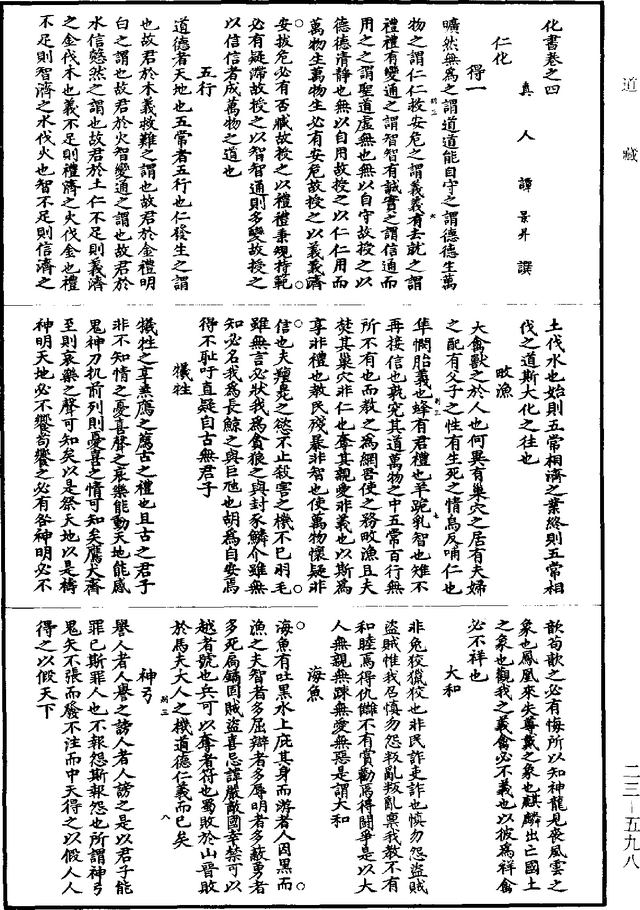 道藏
化書卷之四
真人譚景昇撰
仁化
得一
曠然無爲之謂道道能自守之謂德德生萬
物之謂仁仁救安危之謂義義有去就之謂
禮禮有變通之謂智智有誠實之謂信通而
用之之謂聖道虛無也無以自守故授之以
德德清靜也無以自用故授之以仁仁用而
萬物生萬物生必有安危故授之以義義濟
安拔危必有否臧故授之以禮禮秉規持範
必有疑滯故授之以智智通則多變故授之
以信信者成萬物之道也
五行
道德者天地也五常者五行也仁發生之謂
也故君於木義救難之謂也故君於金禮明
白之謂也故君於火智變通之謂也故君於
水信慤然之謂也故君於土仁不足則義濟
之金伐木也義不足則禮濟之火伐金也禮
不足則智濟之水伐火也智不足則信濟之
土伐水也始則五常相濟之業終則五常相
伐之道斯大化之往也
畋漁
夫禽獸之於人也何異有巢穴之居有夫婦
之配有父子之性有生死之情烏反哺仁也
隼憫胎義也蜂有君禮也羊跪乳智也雉不
再接信也孰究其道萬物之中五常百行無
所不有也而教之爲網罟使之務畋漁且夫
焚其巢穴非仁也奪其親愛非義也以斯爲
享非禮也教民殘暴非智也使萬物懷疑非
信也夫羶臭之慾不止殺害之機不已羽毛
雖無言必狀我爲貪狼之與封豕鱗介雖無
知必名我爲長鯨之與巨虺也胡爲自安焉
得不恥吁直疑自古無君子
犠牲
犠牲之享羔鴈之薦古之禮也且古之君子
非不知情之憂喜聲之哀樂能動天地能感
鬼神刀杌前列則憂喜之情可知矣鷹犬齊
至則哀樂之聲可知矣以是祭天地以是禱
神明天地必不饗苟饗之必有咎神明必不
歆苟歆之必有悔所以知神龍見喪風雲之
象也鳳凰來失尊戴之象也麒麟出亡國土
之象也觀我之義禽必不義也以彼爲祥禽
必不祥也
大和
非兔狡獵狡也非民詐吏詐也慎勿怨盜賊
盜賊惟我召慎勿怨叛亂叛亂稟我教不有
和睦焉得仇讎不有賞勸焉得鬬爭是以大
人無親無踈無愛無惡是謂大和
海魚
海魚有吐黑水上庇其身而游者人因黑而
漁之夫智者多屈辯者多辱明者多蔽勇者
多死扃鐍固賊盜喜忌諱嚴敵國幸禁可以
越者號也兵可以奪者符也蜀敗於山晉敗
於馬夫大人之機道德仁義而已矣
神弓
譽人者人譽之謗人者人謗之是以君子能
罪己斯罪人也不報怨斯報怨也所謂神弓
鬼矢不張而發不注而中天得之以假人人
得之以假天下
二三—五九八